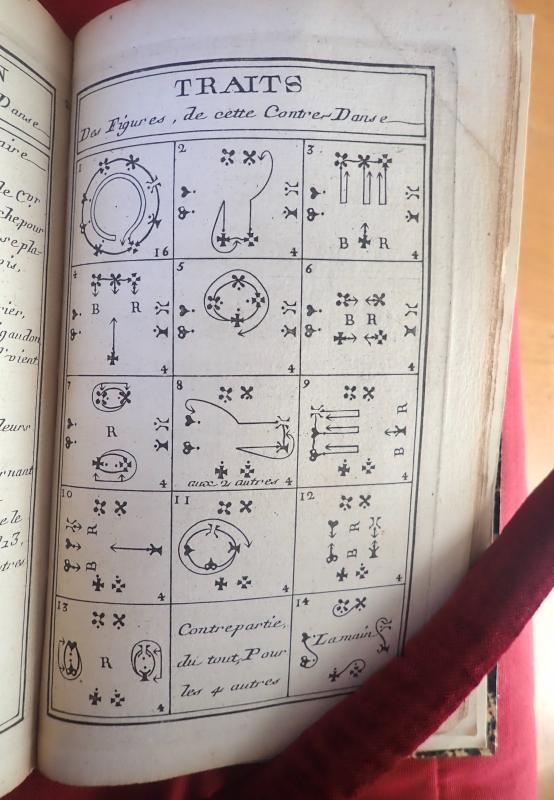 TRAITS
Des Figures, de cette Contre-Danse
1
16
2
4
3
B R
4
4
B R
4
5
4
6
B R
4
7
R
4
8
aux 2 autres 4
9
R
B
4
10
R
B
4
11
4
12
B R
4
13
R
4
Contrepartie,
du tout, Pour
les 4 autres
14
La main
Danse
aire
ois,
rier,
gaudon
vient
leurs
rnant
le